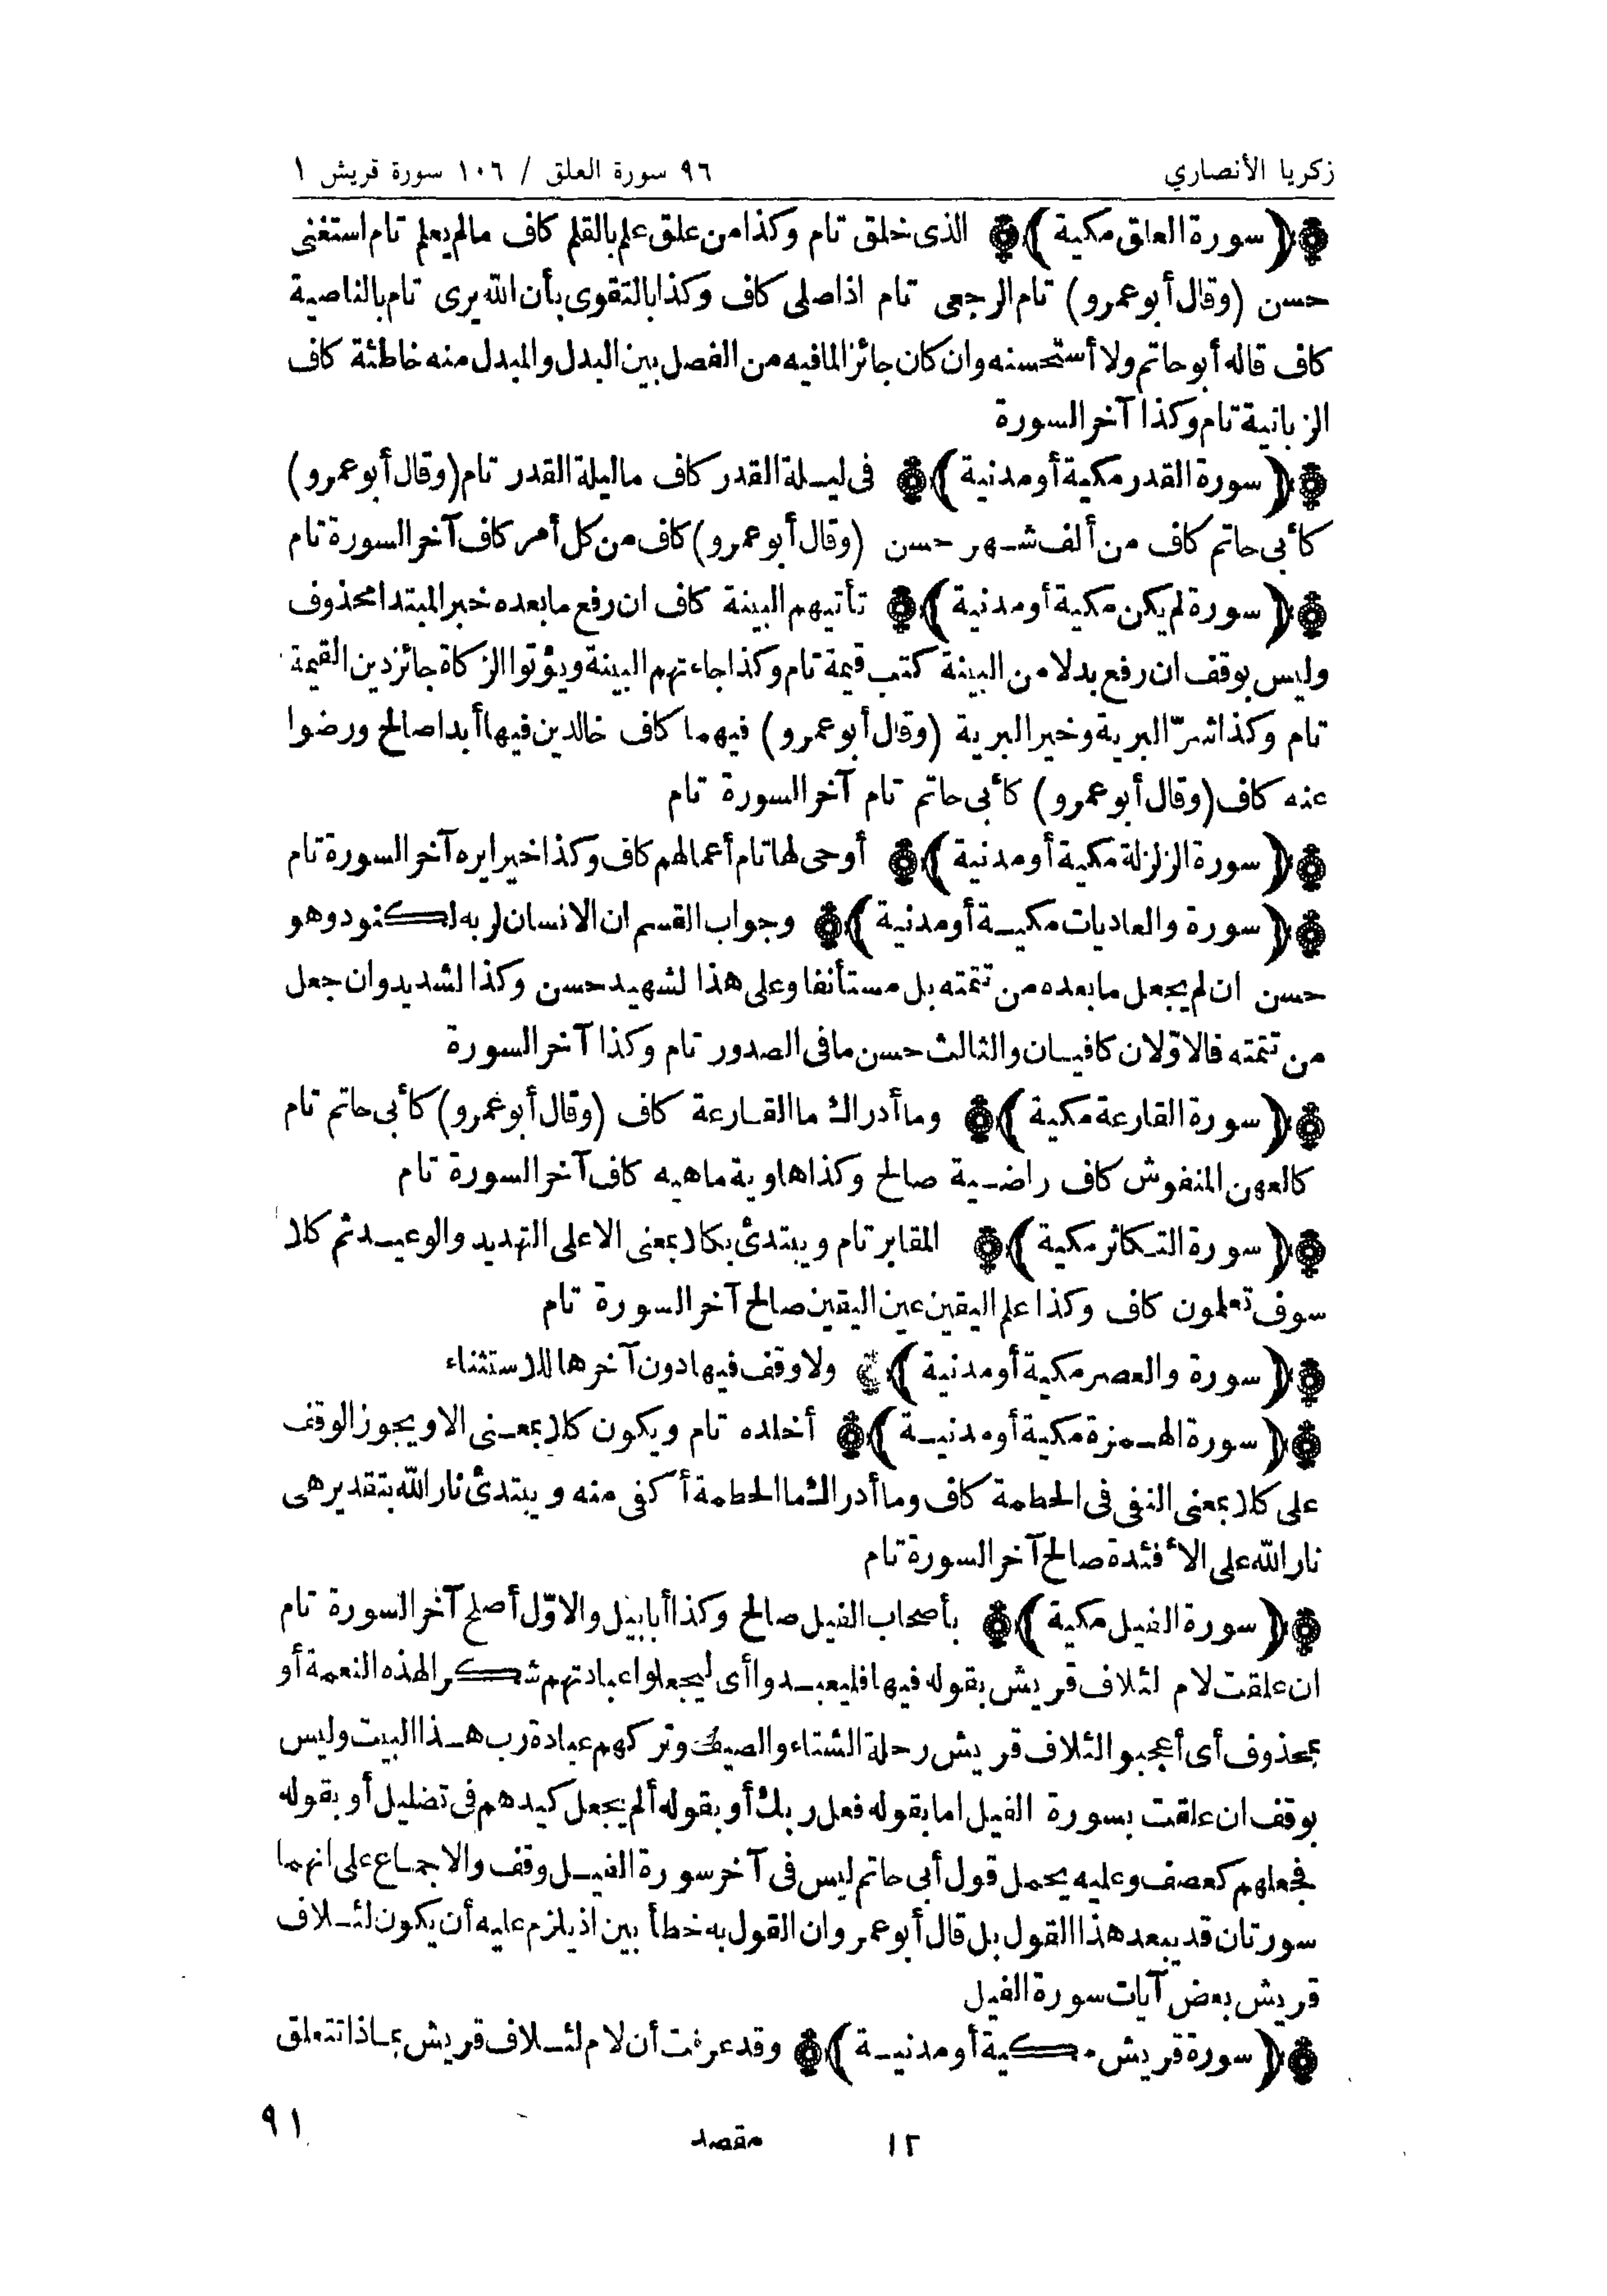 زكريا الأنصاري
٩٦ سورة العلق / ١٠٦ سورة قريش ١
﴿ سورة العلق مكية ﴾ الذى خلق تام وكذا من علق علم بالقلم كاف مالم يعلم تام استغنى
حسن (وقال أبو عمرو) تام الرجعى تام اذا صلى كاف وكذا بالتقوى بأن الله يرى تام بالناصية
كاف قاله أبو حاتم ولا أستحسنه وان كان جائزا لما فيه من الفصل بين البدل والمبدل منه خاطئة كاف
الزبانية تام وكذا آخر السورة
﴿ سورة القدر مكية أو مدنية ﴾ فى ليلة القدر كاف ما ليلة القدر تام (وقال أبو عمرو)
كأبى حاتم كاف من ألف شهر حسن (وقال أبو عمرو) كاف من كل أمر كاف آخر السورة تام
﴿ سورة لم يكن مكية أو مدنية ﴾ تأتيهم البينة كاف ان رفع ما بعده خبر المبتدا محذوف
وليس بوقف ان رفع بدلا من البينة كتب قيمة تام وكذا جاءتهم البينة ويؤتوا الزكاة جائز دين القيمة
تام وكذا شرّ البرية وخير البرية (وقال أبو عمرو) فيهما كاف خالدين فيها أبدا صالح ورضوا
عنه كاف (وقال أبو عمرو) كأبى حاتم تام آخر السورة تام
﴿ سورة الزلزلة مكية أو مدنية ﴾ أوحى لها تام أعمالهم كاف وكذا خيرا يره آخر السورة تام
﴿ سورة والعاديات مكية أو مدنية ﴾ وجواب القسم ان الانسان لربه لكنود وهو
حسن ان لم يجعل ما بعده من تتمته بل مستأنفا وعلى هذا لشهيد حسن وكذا لشديد وان جعل
من تتمته فالاوّلان كافيان والثالث حسن ما فى الصدور تام وكذا آخر السورة
﴿ سورة القارعة مكية ﴾ وما أدراك ما القارعة كاف (وقال أبو عمرو) كأبى حاتم تام
كالعهن المنفوش كاف راضية صالح وكذا هاوية ماهيه كاف آخر السورة تام
﴿ سورة التكاثر مكية ﴾ المقابر تام ويبتدئ بكلا بمعنى الا على التهديد والوعيد ثم كلا
سوف تعلمون كاف وكذا علم اليقين عين اليقين صالح آخر السورة تام
﴿ سورة والعصر مكية أو مدنية ﴾ ولا وقف فيها دون آخرها للاستثناء
﴿ سورة الهمزة مكية أو مدنية ﴾ أخلده تام ويكون كلا بمعنى الا ويجوز الوقف
على كلا بمعنى النفى فى الحطمة كاف وما أدراك ما الحطمة أكفى منه ويبتدئ نار الله بتقدير هى
نار الله على الأفئدة صالح آخر السورة تام
﴿ سورة الفيل مكية ﴾ بأصحاب الفيل صالح وكذا أبابيل والاوّل أصلح آخر السورة تام
ان علقت لام لئلاف قريش بقوله فيها فليعبدوا أى ليجعلوا عبادتهم شكرا لهذه النعمة أو
بمحذوف أى أعجبوا لئلاف قريش رحلة الشتاء والصيف وتركهم عبادة رب هذا البيت وليس
بوقف ان علقت بسورة الفيل اما بقوله فعل ربك أو بقوله ألم يجعل كيدهم فى تضليل أو بقوله
فجعلهم كعصف وعليه يحمل قول أبى حاتم ليس فى آخر سورة الفيل وقف والاجماع على انهما
سورتان قد يبعد هذا القول بل قال أبو عمرو ان القول به خطأ بين اذ يلزم عليه أن يكون لئلاف
قريش بعض آيات سورة الفيل
﴿ سورة قريش مكية أو مدنية ﴾ وقد عرفت أن لام لئلاف قريش بماذا تتعلق
٩١
١٢ مقصد